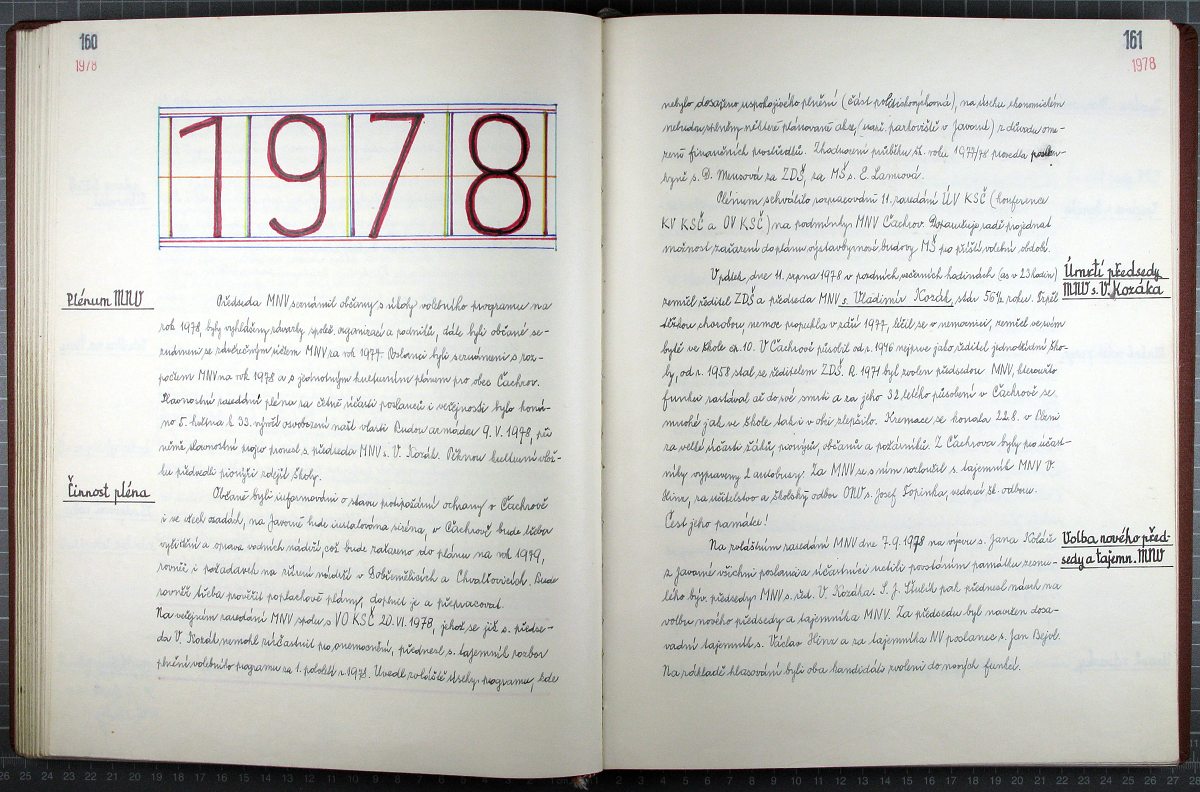 160
1978
1978
Plénum MNV
Předseda MNV seznámil občany s úkoly volebního programu na
rok 1978, byly vyhlášeny závazky společ. organizací a podniků, dále byli občané se-
známeni se závěrečným účtem MNV za rok 1977. Poslanci byli seznámeni s roz-
počtem MNV na rok 1978 a s jednotným kulturním plánem pro obec Čachrov.
Slavnostní zasedání pléna za četné účasti poslanců i veřejnosti bylo koná-
no 5. května k 33. výročí osvobození naší vlasti Rudou armádou 9. V. 1978, při
němž slavnostní projev pronesl s. předseda MNV s. V. Kozák. Pěknou kulturní vlož-
ku předvedli pionýři zdejší školy.
Činnost pléna
Občané byli informováni o stavu protipožární ochrany v Čachrově
i ve všech osadách, na Javorné bude instalována siréna, v Čachrově bude třeba
vyčištění a oprava vodních nádrží, což bude zařazeno do plánu na rok 1979,
rovněž i požadavek na zřízení nádrží v Dobřemělicích a Chvalšovicích. Bude
rovněž třeba prověřit poplachové plány, doplnit je a přepracovat.
Na veřejném zasedání MNV spolu s VO KSČ 20. VI. 1978, jehož se již s. předse-
da V. Kozák nemohl zúčastnit pro onemocnění, přednesl s. tajemník rozbor
plnění volebního programu za 1. pololetí r. 1978. Uvedl zvláště úseky programu, kde
161
1978
nebylo dosaženo uspokojivého plnění (část politickovýchovná), na úseku ekonomickém
nebudou splněny některé plánované akce (např. parkoviště v Javorné) z důvodu ome-
zení finančních prostředků. Zhodnocení průběhu šk. roku 1977/78 provedla poslan-
kyně s. D. Mensová za ZDŠ, za MŠ s. E. Lamrová.
Plénum schválilo rozpracování 11. zasedání ÚV KSČ (konference
KV KSČ a OV KSČ) na podmínky MNV Čachrov. Doporučuje radě projednat
možnost zařazení do plánu výstavby nové budovy MŠ pro příští volební období.
Úmrtí předsedy
MNV s. V. Kozáka
V pátek dne 11. srpna 1978 v pozdních večerních hodinách (as v 23 hodin)
zemřel ředitel ZDŠ a předseda MNV s. Vladimír Kozák, stár 56½ roku. Trpěl
těžkou chorobou, nemoc propukla v září 1977, léčil se v nemocnici, zemřel ve svém
bytě ve škole čp. 10. V Čachrově působil od r. 1946 nejprve jako ředitel jednotřídní ško-
ly, od r. 1958 stal se ředitelem ZDŠ. R. 1971 byl zvolen předsedou MNV, kteroužto
funkci zastával až do své smrti a za jeho 32 letého působení v Čachrově se
mnohé jak ve škole tak i v obci zlepšilo. Kremace se konala 22.8. v Plzni
za velké účasti žáků, pionýrů, občanů a požárníků. Z Čachrova byly pro účast-
níky vypraveny 2 autobusy. Za MNV se s ním rozloučil s. tajemník MNV V.
Hinz, za učitelstvo a školský odbor ONV s. Josef Topinka, vedoucí šk. odboru.
Čest jeho památce!
Volba nového před-
sedy a tajemn. MNV
Na zvláštním zasedání MNV dne 7.9.1978 na výzvu s. Jana Koláře
z Javorné všichni poslanci a účastníci uctili povstáním památku zemře-
lého býv. předsedy MNV s. řed. V. Kozáka. S. J. Štulík pak přednesl návrh na
volbu nového předsedy a tajemníka MNV. Za předsedu byl navržen dosa-
vadní tajemník s. Václav Hinz a za tajemníka NV poslanec s. Jan Bejol.
Na základě hlasování byli oba kandidáti zvoleni do nových funkcí.